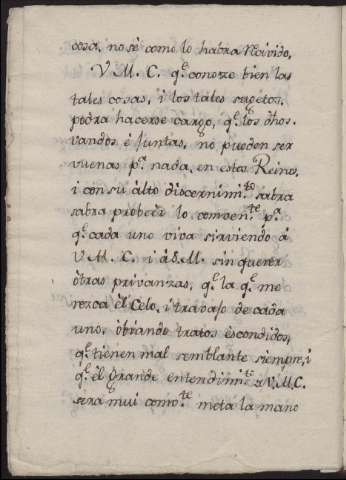 cosa, no sè como lo habra Rêcivido,
V. M. C. q.ᵉ conoze bien las
tales cosas, i los tales sugetos,
podra hacerse cargo, q.ᵉ los dhos.
vandos é Juntas, no pueden ser
vuenas p.ᵃ nada, en estos Reinos,
i con su alto discernimi.ᵗᵒ sabra
sabra probeer lo comben.ᵗᵉ p.ᵃ
q.ᵉ cada uno viva sirviendo á
V. M. C. i á S. M. sin querer
ótras privanzas, q.ᵉ la q.ᵉ me
rezca él Celo, i travajo de cada
uno, óbiando tratos éscondidos,
q.ᵉ tienen mal semblante siempre, i
q.ᵉ él Grande entendimi.ᵗᵒ de V. M. C.
sera mui comb.ᵗᵉ meta la mano